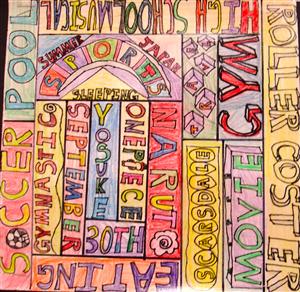 HIGH SCHOOL MUSICAL
POOL
SUMMER
JAPAN
SPORTS
SLEEPING
GYM
ROLLER COSTER
SOCCER
SEPTEMBER
YOSUKE
30TH
ONEPIECE
NARUTO
SCARSDALE
MOVIE
EATING